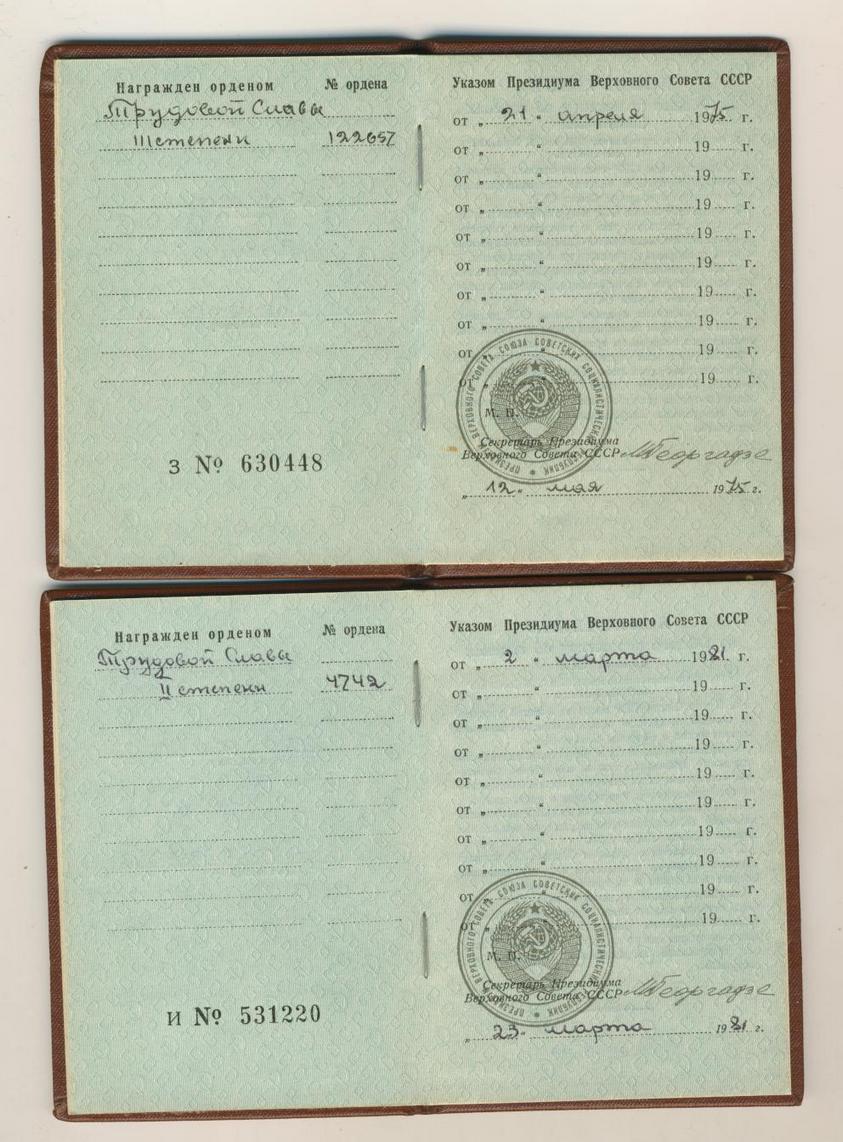 Награжден орденом № ордена
Трудовой Славы
III степени 122657
З № 630448
Указом Президиума Верховного Совета СССР
от „ 21 “ апреля 1975 г.
от „ “ 19 г.
от „ “ 19 г.
от „ “ 19 г.
от „ “ 19 г.
от „ “ 19 г.
от „ “ 19 г.
от „ “ 19 г.
от „ “ 19 г.
от „ “ 19 г.
ПРЕЗИДИУМ ВЕРХОВНОГО СОВЕТА СОЮЗА СОВЕТСКИХ СОЦИАЛИСТИЧЕСКИХ РЕСПУБЛИК
М. П.
Секретарь Президиума
Верховного Совета СССР МГеоргадзе
„ 12 “ мая 1975 г.
Награжден орденом № ордена
Трудовой Славы
II степени 4742
И № 531220
Указом Президиума Верховного Совета СССР
от „ 2 “ марта 1981 г.
от „ “ 19 г.
от „ “ 19 г.
от „ “ 19 г.
от „ “ 19 г.
от „ “ 19 г.
от „ “ 19 г.
от „ “ 19 г.
от „ “ 19 г.
от „ “ 19 г.
ПРЕЗИДИУМ ВЕРХОВНОГО СОВЕТА СОЮЗА СОВЕТСКИХ СОЦИАЛИСТИЧЕСКИХ РЕСПУБЛИК
М. П.
Секретарь Президиума
Верховного Совета СССР МГеоргадзе
„ 23 “ марта 1981 г.